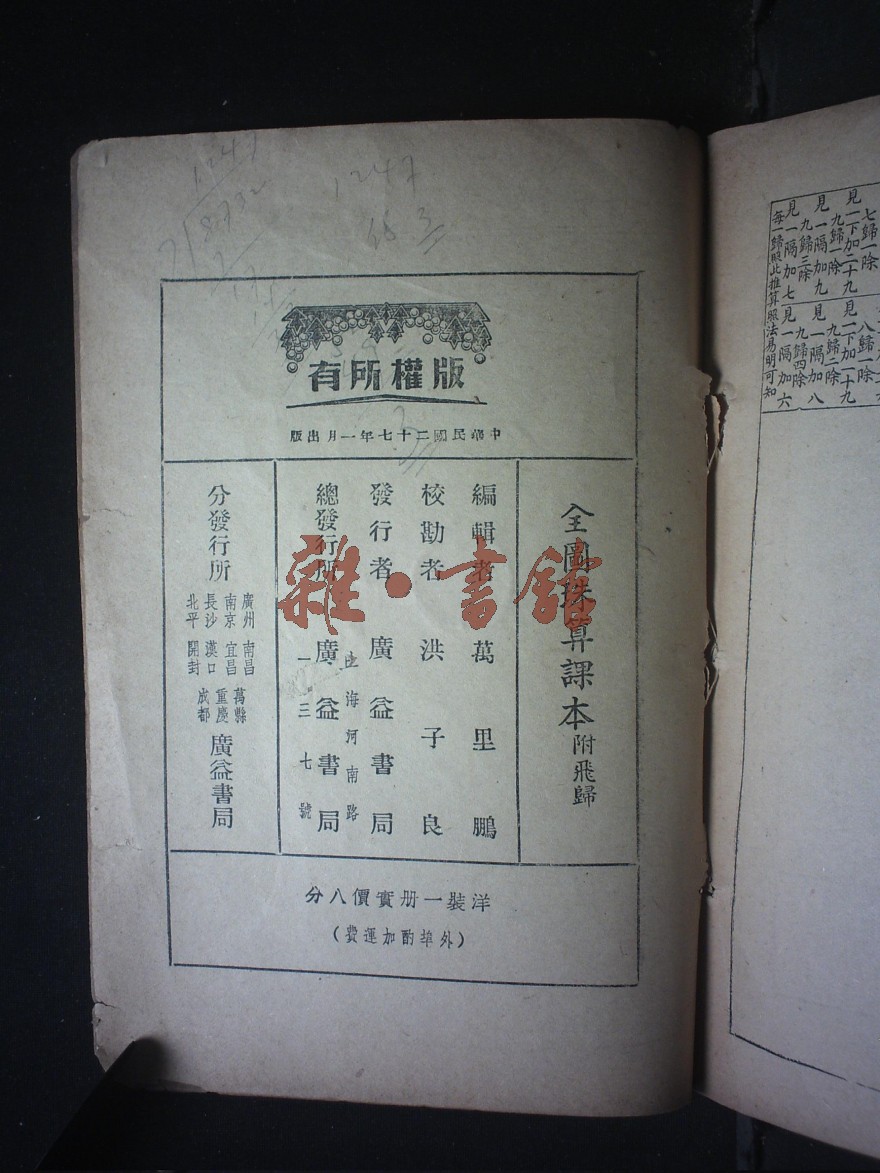 1247
1247
7 8732
3
版權所有
中華民國二十七年一月出版
全圖珠算課本 附飛歸
編輯者 萬里鵬
校勘者 洪子良
發行者 廣益書局
總發行所 廣益書局
上海河南路
一三七號
分發行所 廣益書局
廣州 南昌 萬縣
南京 宜昌 重慶
長沙 漢口 成都
北平 開封
洋裝一册實價八分
(外埠酌加運費)
雜·書館
七歸一除
見一下加二十九
九歸一除
見一隔加九
九歸三除
見一隔加七
八歸一除
見一下加一十九
九歸二除
見一隔加八
九歸四除
見一隔加六
每一歸照此推算照法易明可知